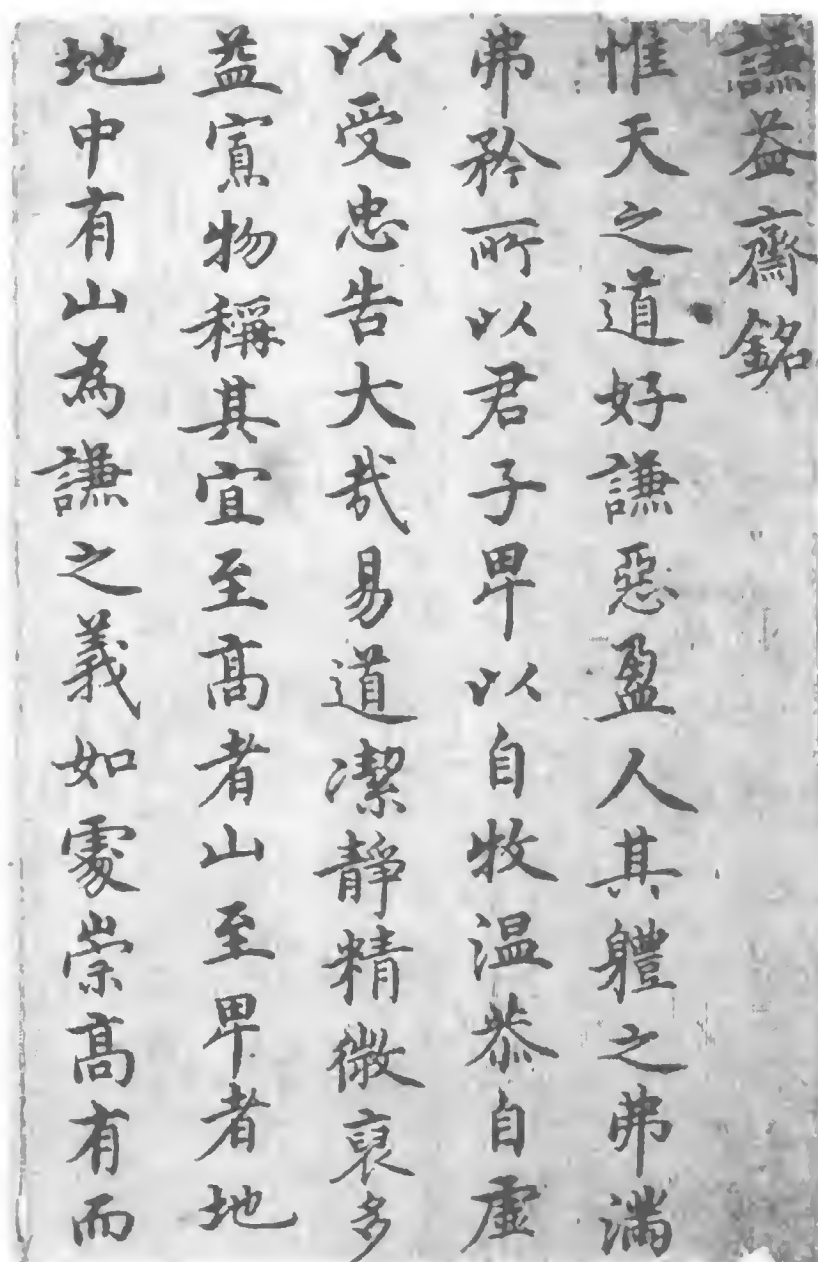 謙益齋銘
惟天之道好謙惡盈人其軆之弗滿
弗矜所以君子卑以自牧温恭自虛
以受忠告大哉易道潔靜精微裒多
益寡物稱其宜至高者山至卑者地
地中有山為謙之義如處崇高有而